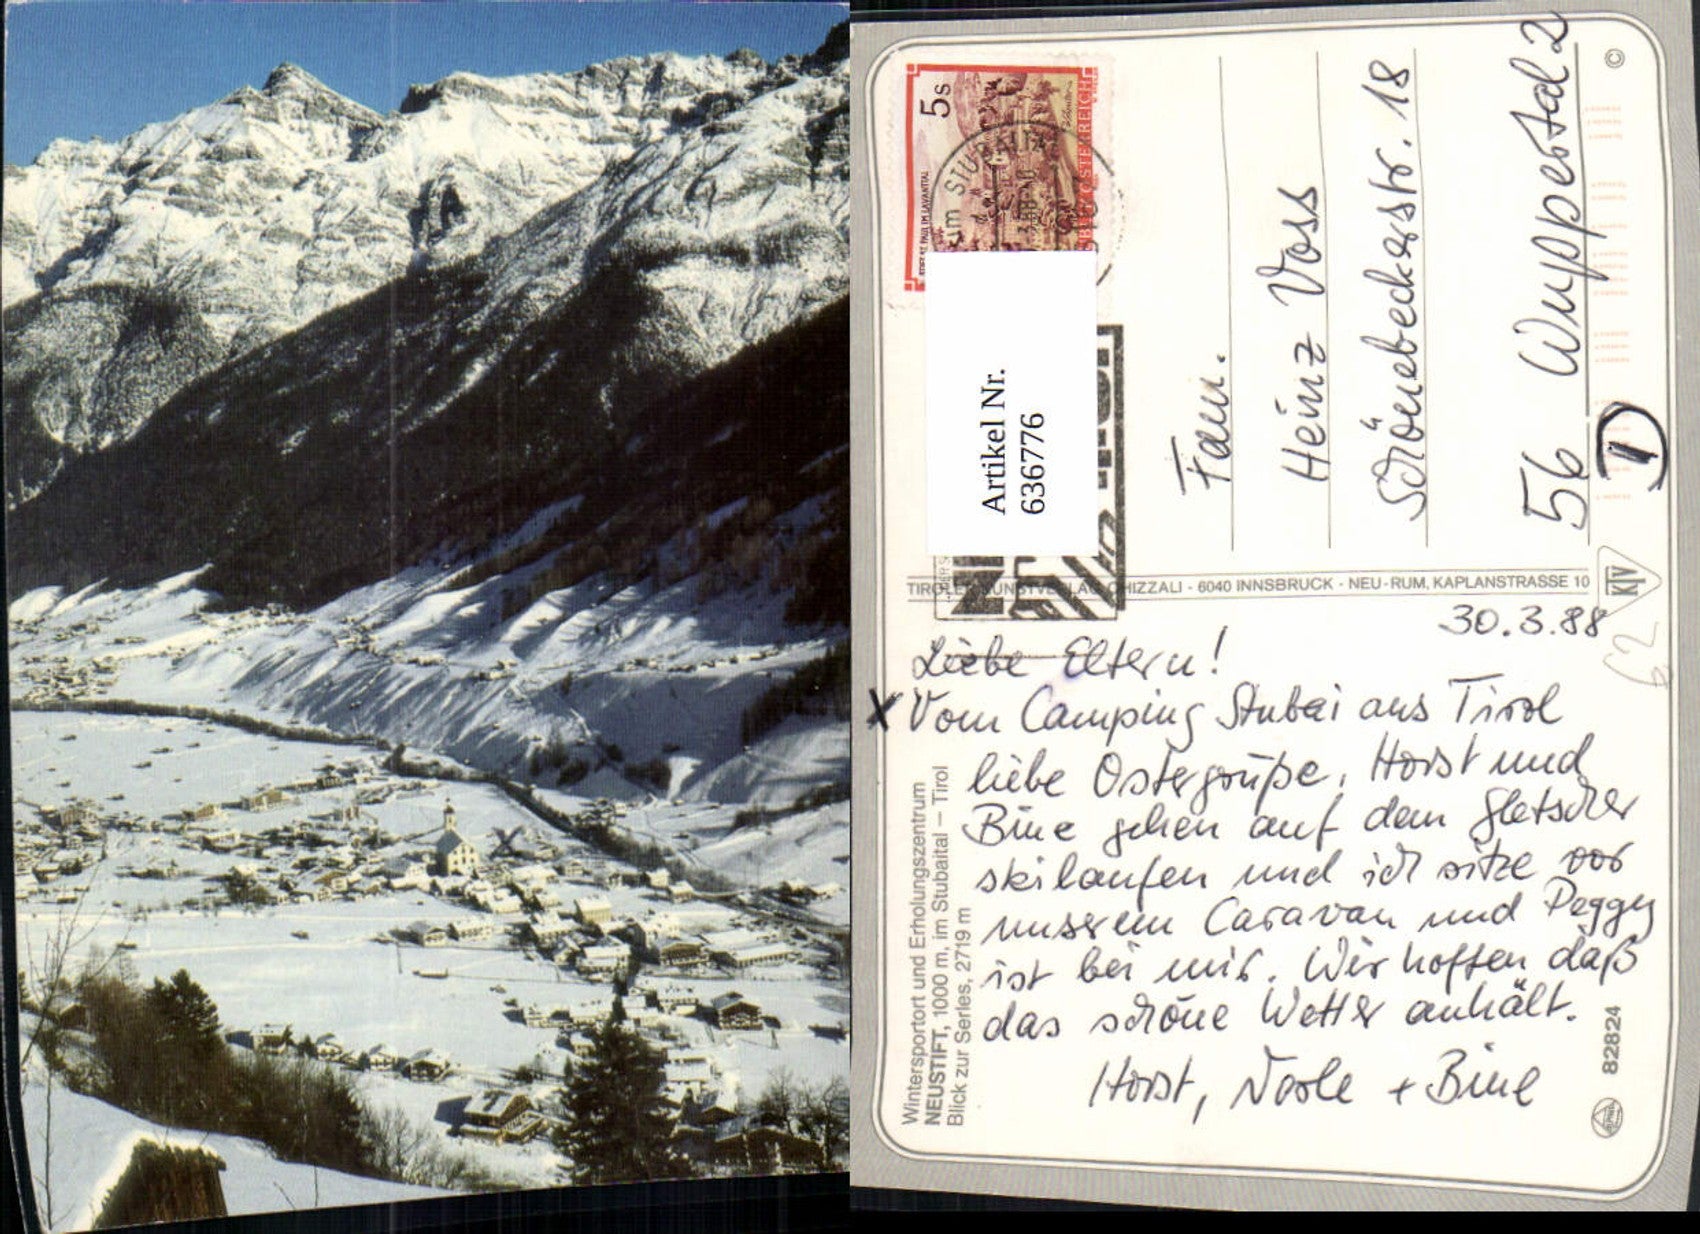 5s
STIFT ST. PAUL IM LAVANTTAL
REPUBLIK ÖSTERREICH
IM STUBAITAL
Artikel Nr.
636776
Fam.
Heinz Voss
Schönebeckerstr. 18
56 Wuppertal 2
D
©
TIROLER KUNSTVERLAG CHIZZALI - 6040 INNSBRUCK - NEU-RUM, KAPLANSTRASSE 10
KTV
62
30.3.88
Liebe Eltern!
X Vom Camping Stubai aus Tirol
liebe Ostergrüße. Horst und
Bine gehen auf dem Gletscher
skilaufen und ich sitze vor
unserem Caravan und Peggy
ist bei mir. Wir hoffen daß
das schöne Wetter anhält.
Horst, Nosle + Bine
Wintersportort und Erholungszentrum
NEUSTIFT, 1000 m, im Stubaital – Tirol
Blick zur Serles, 2719 m
82824